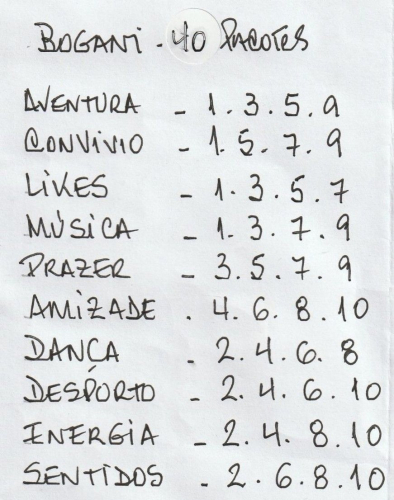 BOGANI - 40 PACOTES
AVENTURA - 1. 3. 5. 9
CONVIVIO - 1. 5. 7. 9
LIKES - 1. 3. 5. 7
MÚSICA - 1. 3. 7. 9
PRAZER - 3. 5. 7. 9
AMIZADE . 4. 6. 8. 10
DANÇA - 2. 4. 6. 8
DESPORTO - 2. 4. 6. 10
ENERGIA - 2. 4. 8. 10
SENTIDOS - 2. 6. 8. 10